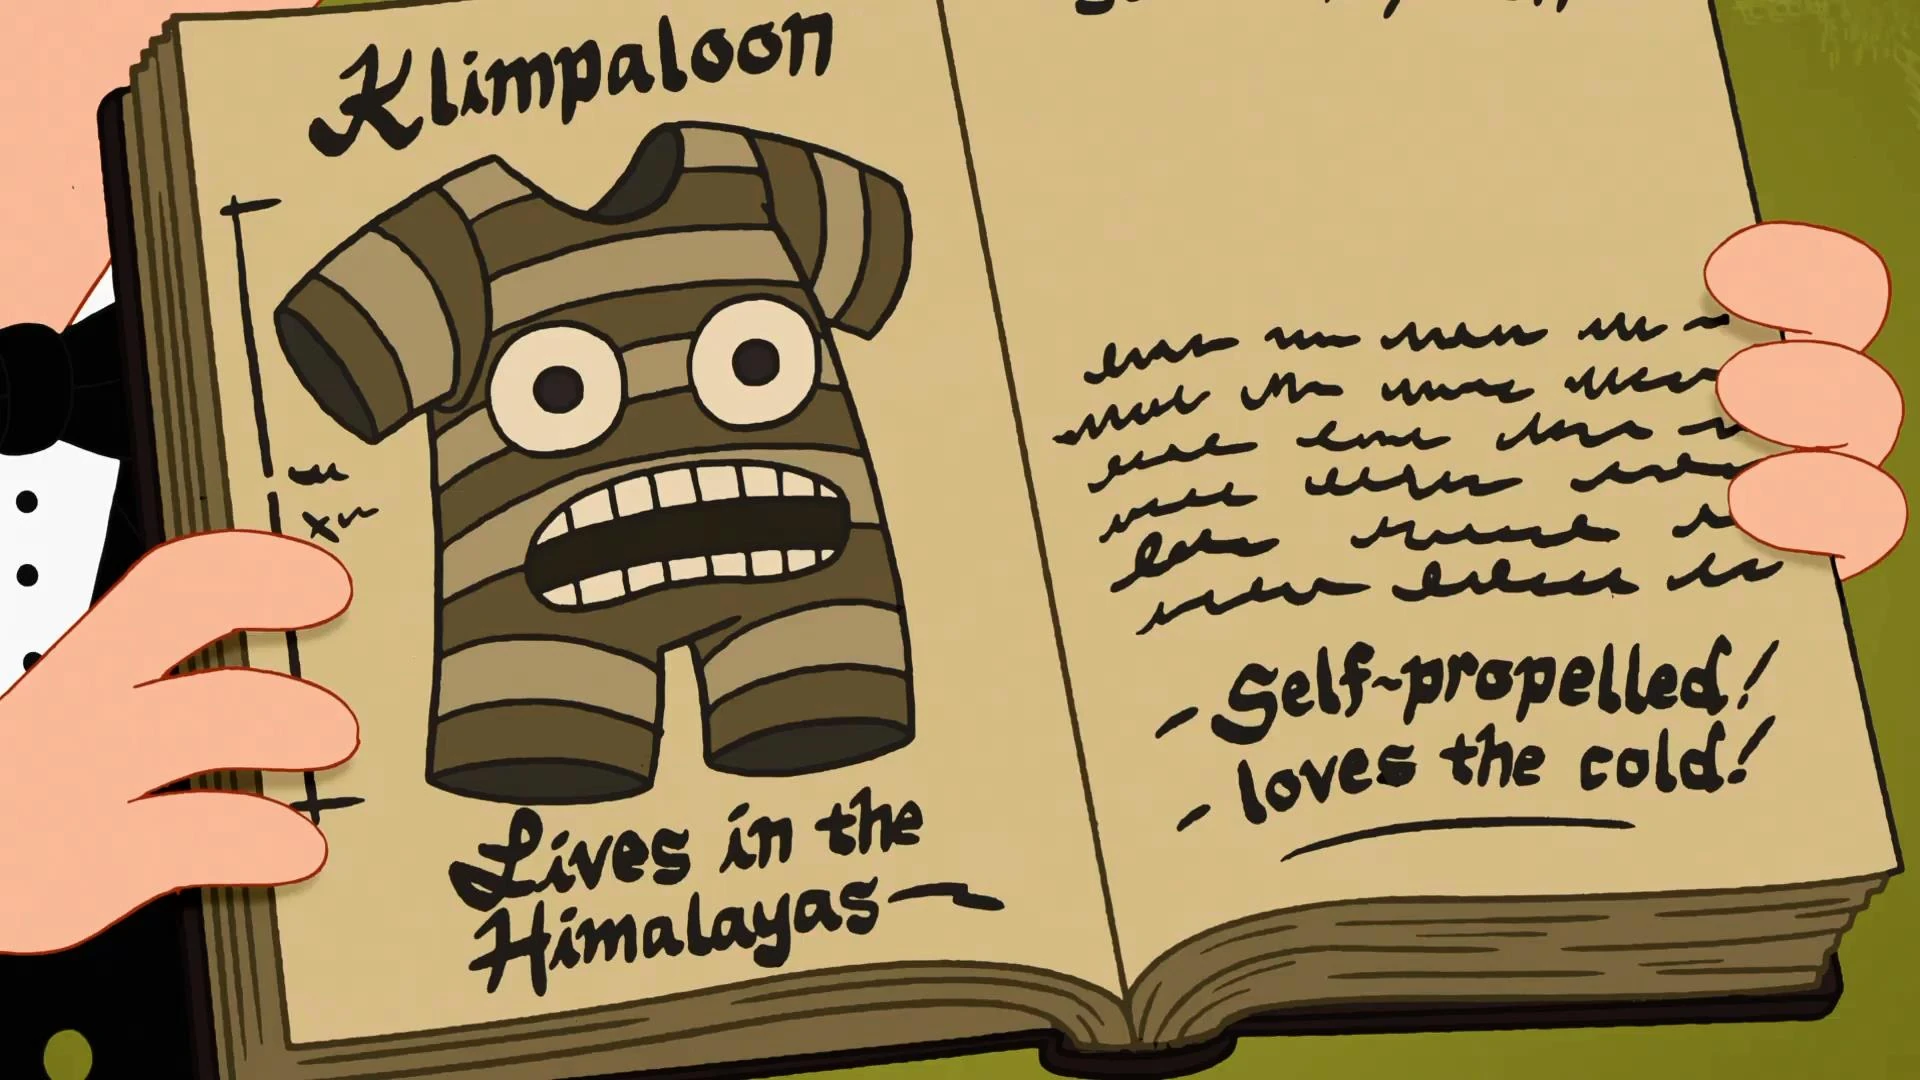 Klimpaloon
Lives in the
Himalayas
- Self-propelled!
- loves the cold!